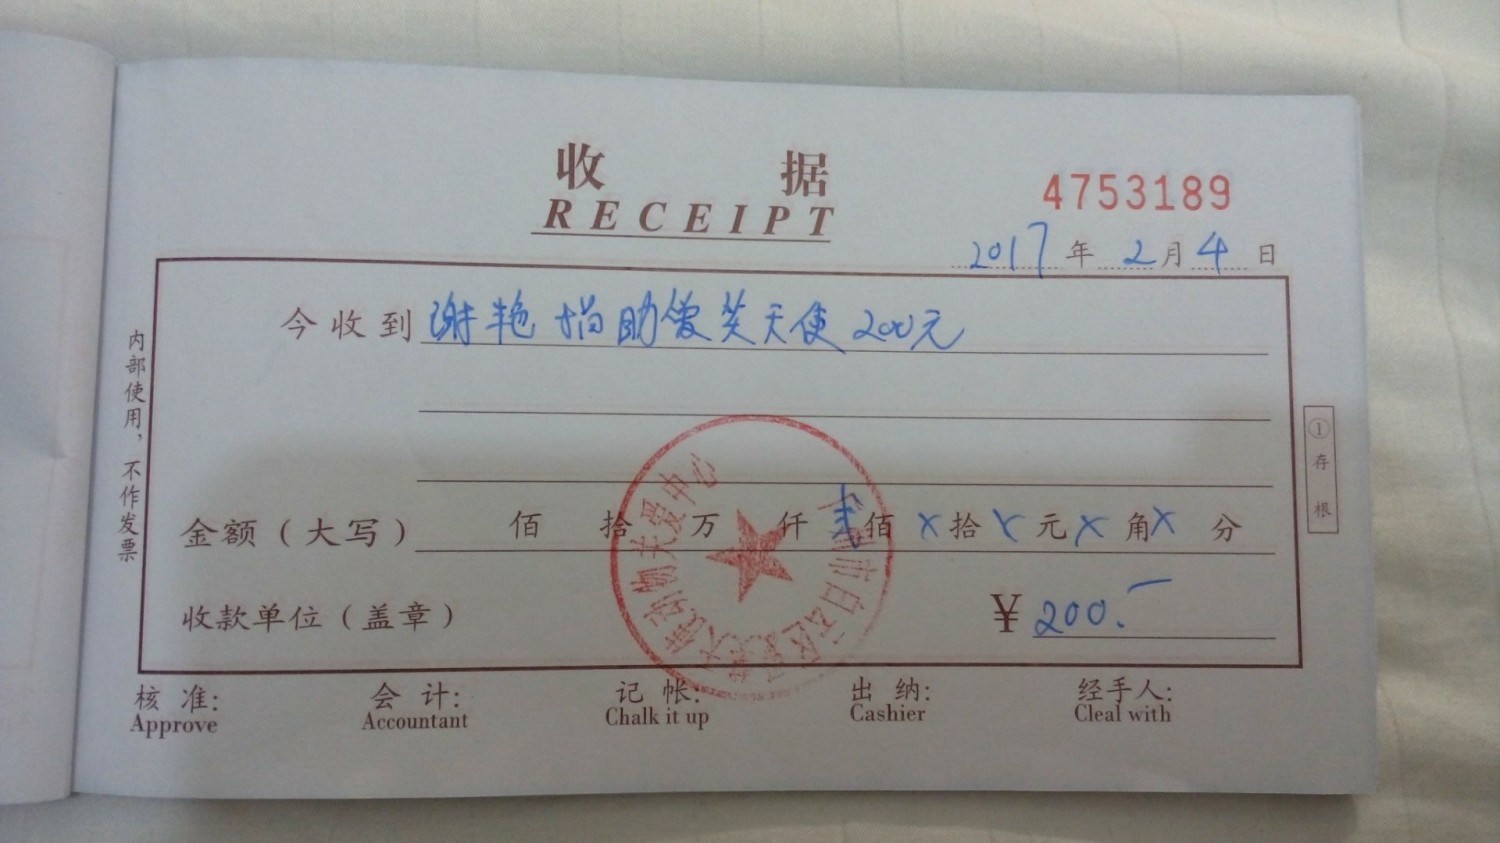 收据
RECEIPT
4753189
2017年2月4日
今收到 谢艳捐助爱笑天使200元
金额(大写) 佰 拾 万 仟 贰佰 X拾 X元 X角 X分
收款单位(盖章) ¥200.-
内部使用,不作发票
①存根
市白云区爱笑天使动物关爱中心
核准: 会计: 记帐: 出纳: 经手人:
Approve Accountant Chalk it up Cashier Cleal with